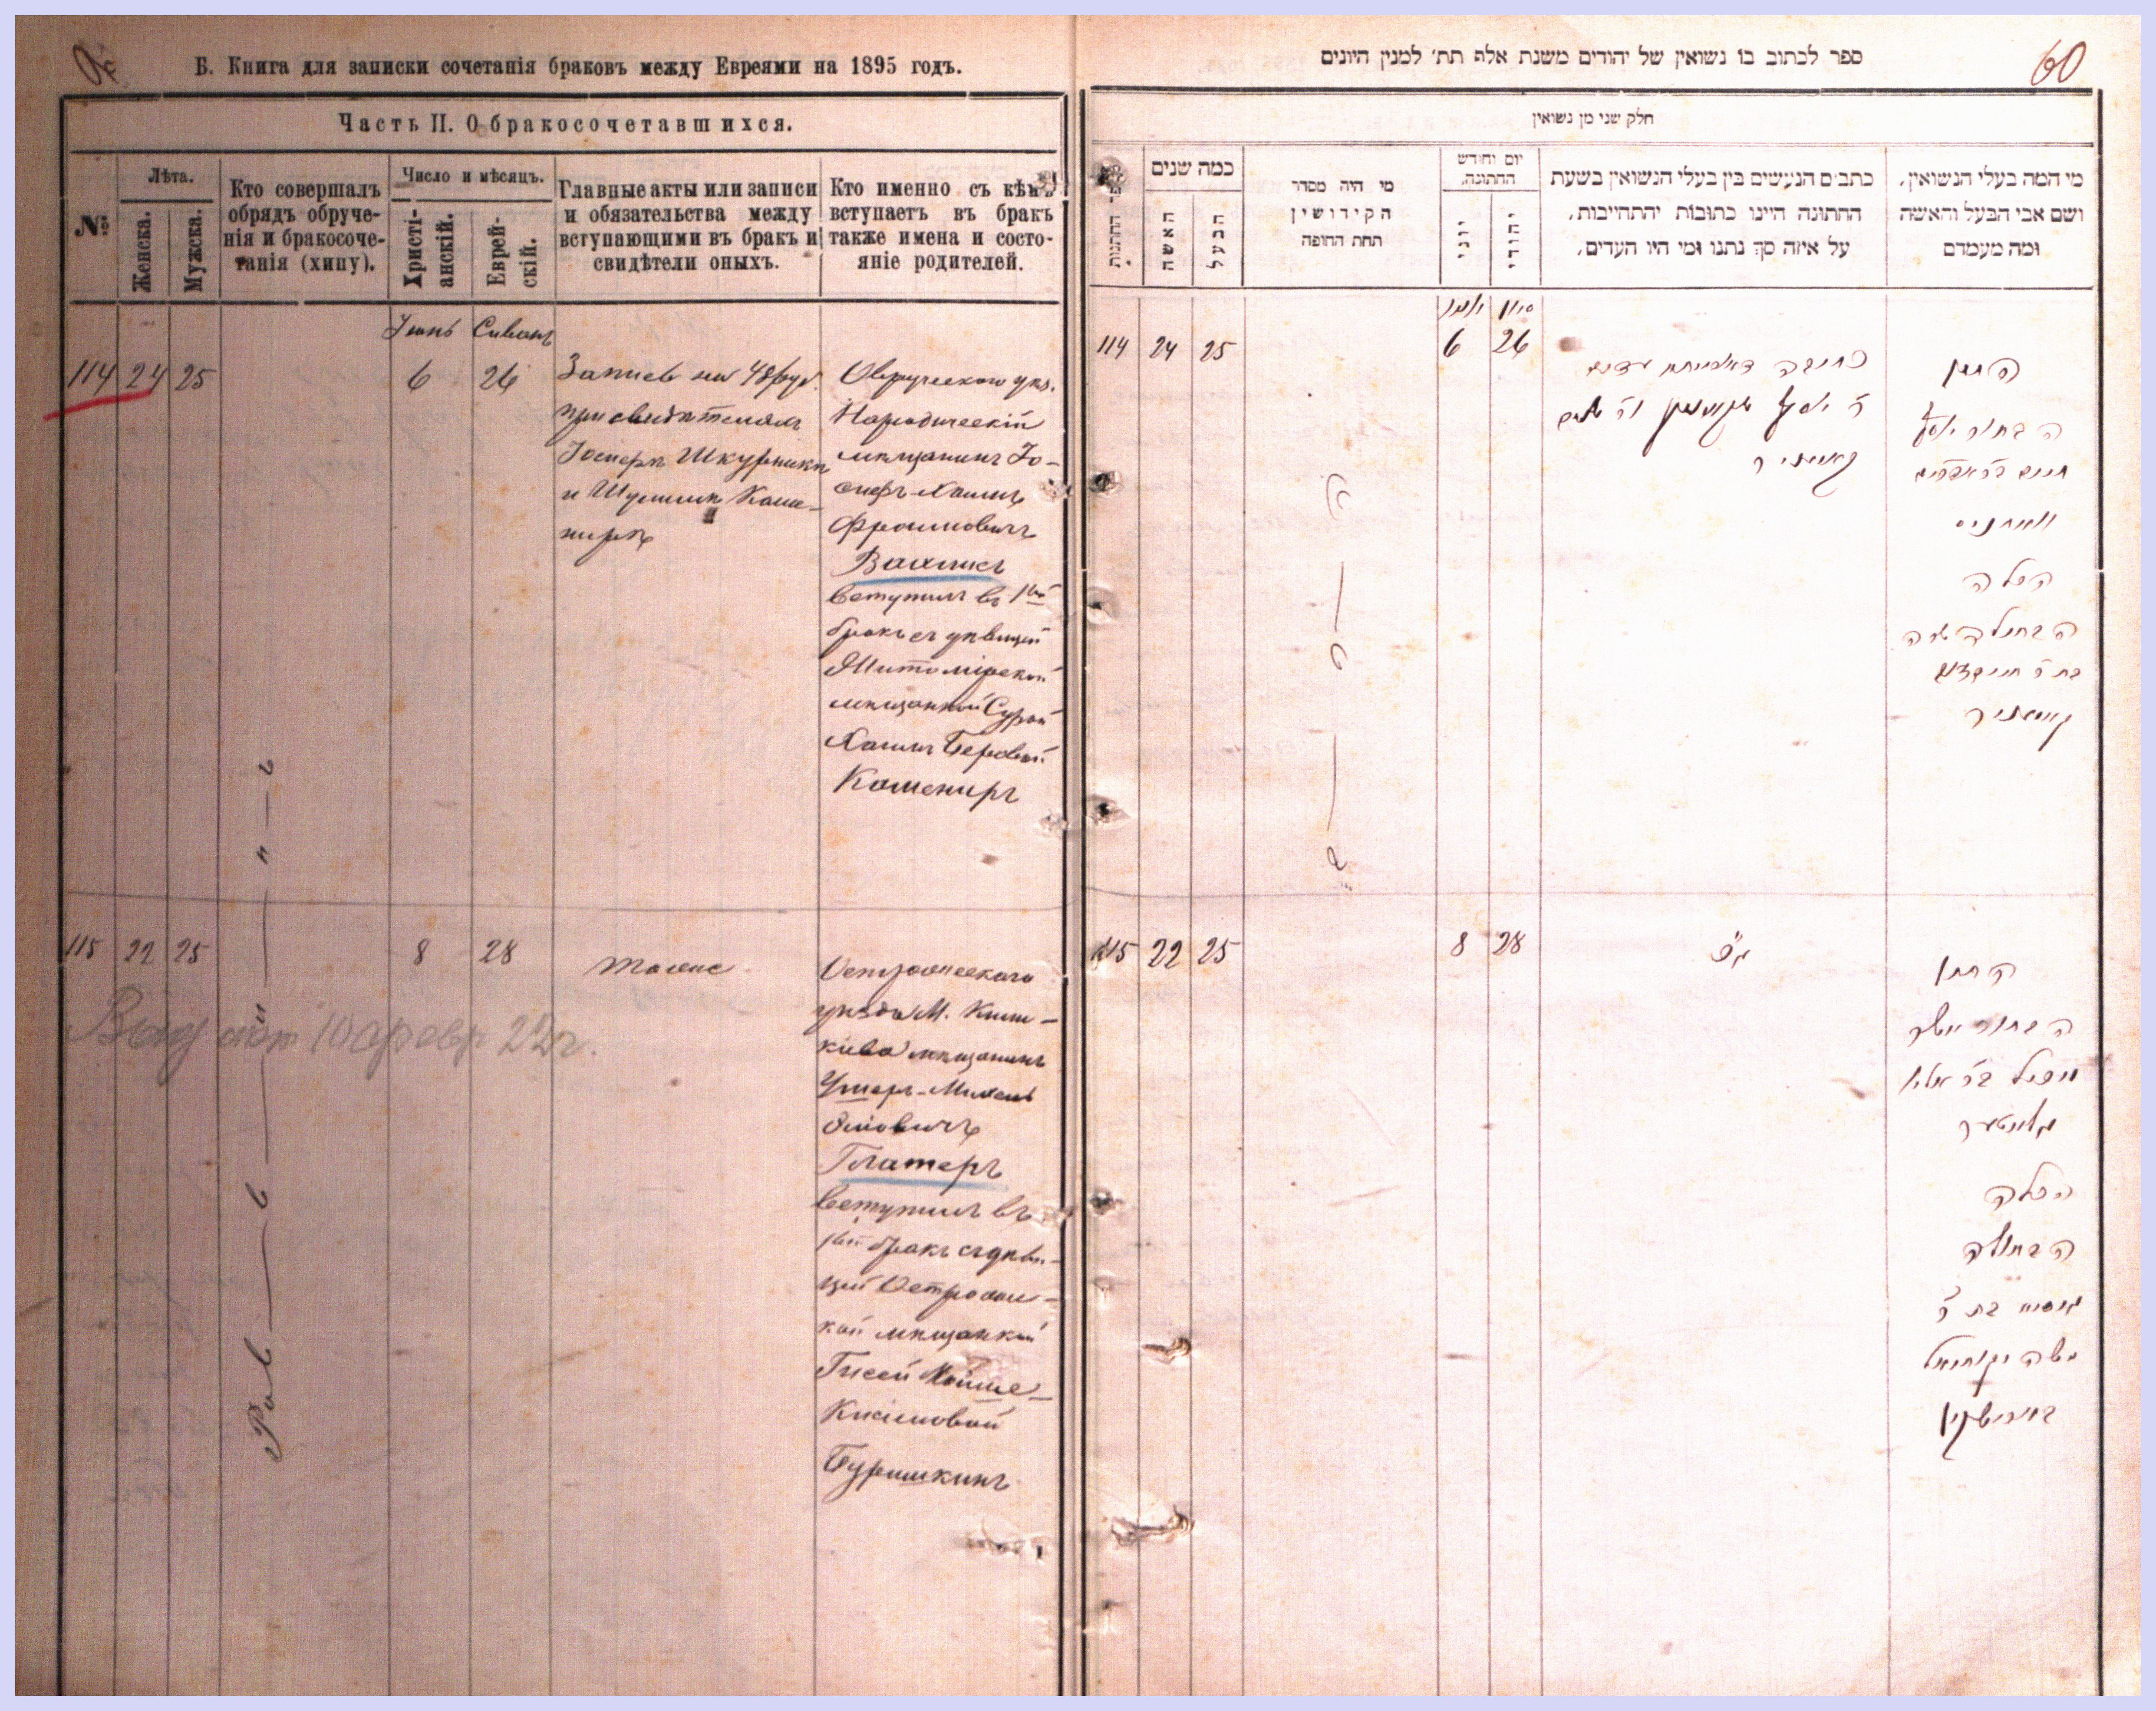 Б. Книга для записки сочетанія браковъ между Евреями на 1895 годъ.
Часть II. О бракосочетавшихся.
№
Лѣта.
Женска.
Мужска.
Кто совершалъ
обрядъ обруче-
нія и бракосоче-
танія (хипу).
Число и мѣсяцъ.
Христі-
анскій.
Еврей-
скій.
Главные акты или записи
и обязательства между
вступающими въ бракъ и
свидѣтели оныхъ.
Кто именно съ кѣмъ
вступаетъ въ бракъ
также имена и состо-
яніе родителей.
Іюнь Сиванъ
114 24 25
6 26
Запись на 48 руб.
при свидѣтеляхъ
Іосифѣ Шкурникѣ
и Шулимѣ Каше-
нирѣ
Овручскаго уѣз.
Народическій
мѣщанинъ Іо-
сифъ-Хаимъ
Фроимовичъ
вступилъ въ 1ый
бракъ съ дѣвицей
Житомірской
мѣщанкой Сурой
Хаимъ Беровой
Кошениръ
115 22 25
8 28
тоже
Острожскаго
уѣзда М. Кили-
кіева мѣщанинъ
Ушеръ-Михель
Эліовичъ
Глатеръ
вступилъ въ
1ый бракъ съ дѣви-
цей Острожс-
кой мѣщанкой
Гисей Мойше-
Буришкинъ
Рав-в-и-н-ъ
10 февр 22г.
ספר לכתוב בו נשואין של יהודים משנת אלף תת׳ למנין היונים
60
חלק שני מן נשואין
כמה שנים
האשה
הבעל
מי היה מסדר
הקידושין
תחת החופה
יום וחודש
החתונה,
יוני
יהודי
כתבים הנעשים בין בעלי הנשואין בשעת
החתונה היינו כתובות יהתחייבות,
על איזה סך נתנו ומי היו העדים,
מי המה בעלי הנשואין,
ושם אבי הבעל והאשה
ומה מעמדם
סיון
114 24 25
6 26
החתן
הבחור יוסף
חיים ב״ר אפרים
הכלה
הבתולה שרה
115 22 25
8 28
החתן
הבחור אשר
מיכל ב״ר אליו
גלאטער
הכלה
הבתולה
גיסיא בת ר׳
משה יקותיאל
בורישקין